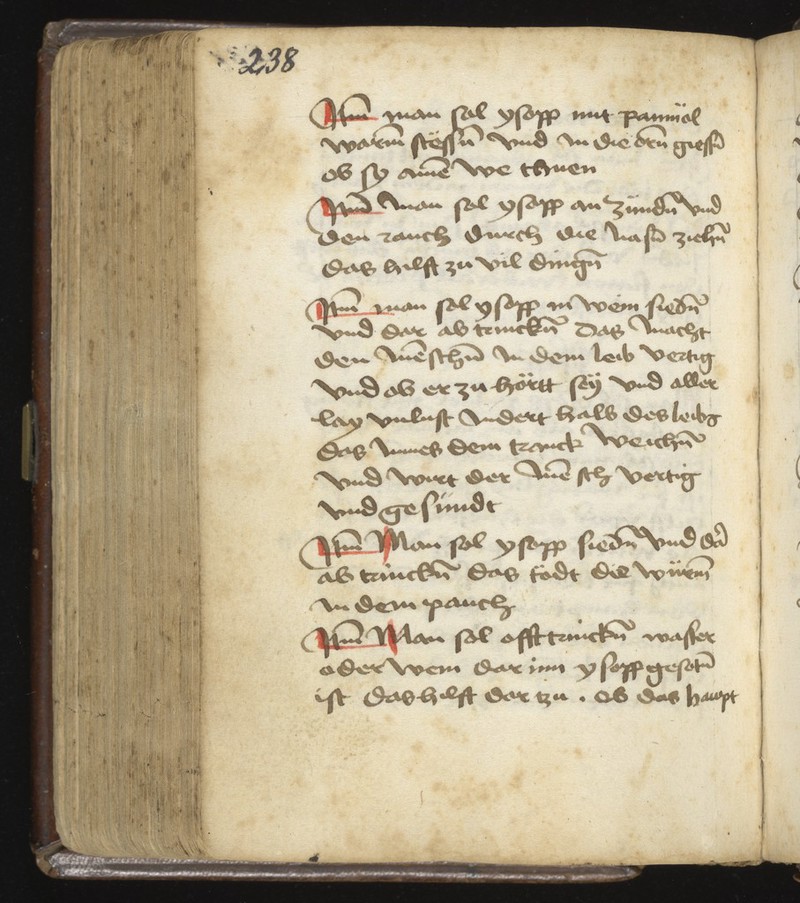 238
Itm̄ man sol ysopp mit pamöl
warm̄ stössn̄ vnd in die orn̄ giessn̄
ob sy aim̄ we thuen
Itm̄ man sol ysopp an zündn̄ vnd
den rauch durch die nasn̄ ziehn̄
das hilft zu vil dingn̄
Itm̄ man sol ysopp in wein siedn̄
vnd dar ab trinckn̄ das macht
den mēschn̄ in dem leib vertig
vnd ob er zu hörtt sey vnd aller
lay vnlust indert halb des leibs
das mues dem tranck weichn̄
vnd wirt der mēsch vertig
vnd gesündt
Itm̄ Man sol ysopp siedn̄ vnd dar
ab trinckn̄ das tödt die würm̄
in dem pauch
Itm̄ Man sol offt trinckn̄ wasser
oder wein dar inn ysopp gesotn̄
ist das hilft dar zu . ob das haupt